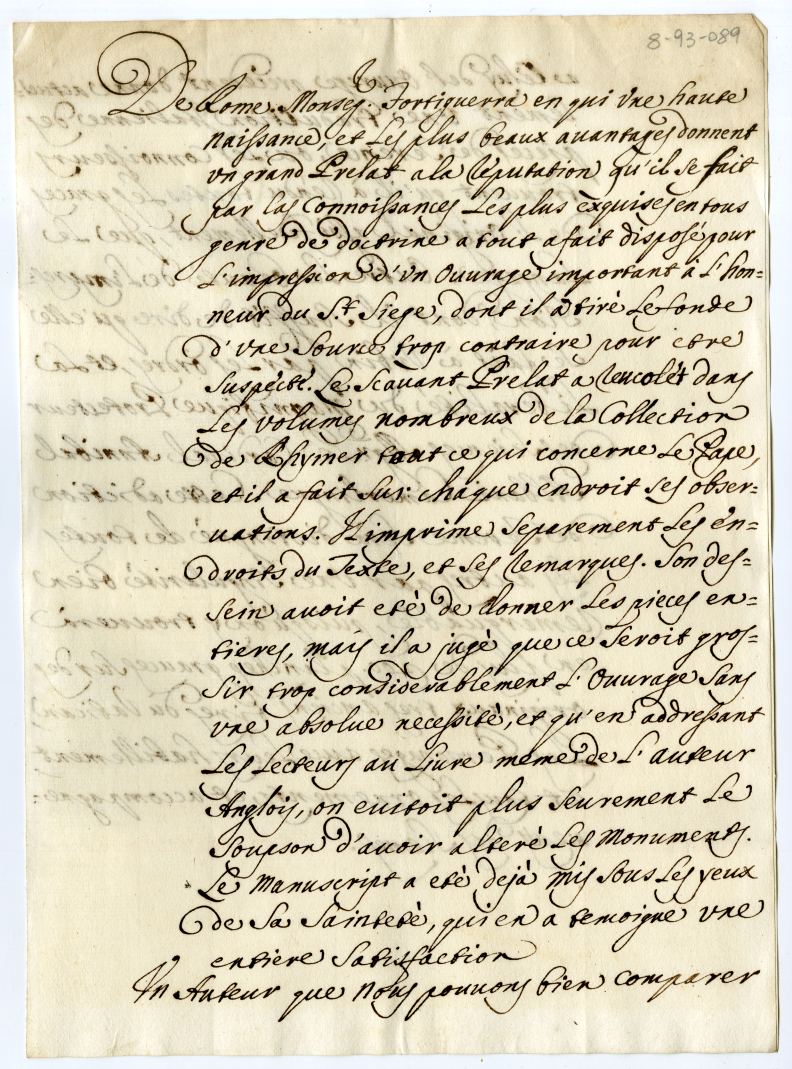 8-93-089
De Rome. Monseg. Fortiguerra en qui vne haute
naissance, et Les plus beaux auantages donnent
vn grand Prelat a la reputation qu'il se fait
par las Connoissances Les plus exquises en tous
genre de doctrine a tout a fait disposé pour
L'impression d'vn Ouurage important à L'hon=
neur du S.t Siege, dont il a tiré Le fonds
d'vne source trop contraire pour etre
suspécté. Le Scauant Prelat a recolét dans
Les volumes nombreux de la Collection
de Rhymer tout ce qui concerne Le Pape,
et il a fait sur chaque endroit ses obser=
uations. Il imprime separement Les en=
droits du Texte, et ses remarques. Son des=
sein auoit eté de donner Les pieces en=
tieres, mais il a jugé que ce seroit gros=
sir trop considerablement L'Ouurage sans
vne absolue necessité, et qu'en addressant
Les Lecteurs au Liure meme de L'auteur
Anglois, on euitoit plus seurement Le
soupson d'auoir alteré Les Monuments.
Le Manuscript a eté dejà mis sous Les yeux
de Sa Sainteté, qui en a temoigne vne
entiere Satisfaction
Vn Auteur que Nous pouuons bien comparer